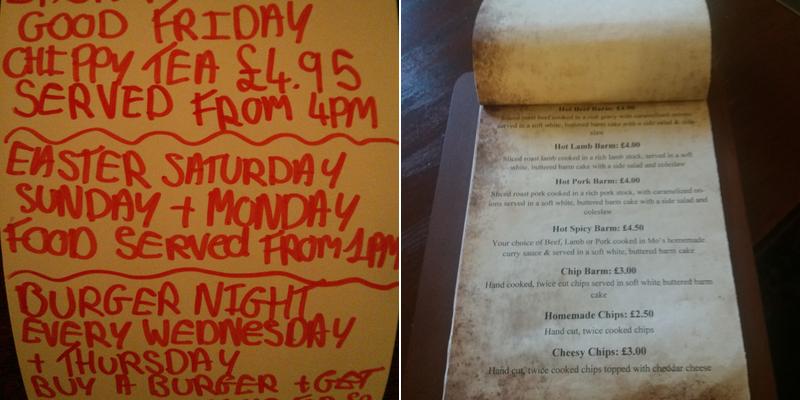 GOOD FRIDAY
CHIPPY TEA £4.95
SERVED FROM 4PM
EASTER SATURDAY
SUNDAY + MONDAY
FOOD SERVED FROM 1PM
BURGER NIGHT
EVERY WEDNESDAY
+ THURSDAY
BUY A BURGER + GET
Hot Beef Barm: £4.00
Sliced roast beef cooked in a rich gravy with caramelized onions
served in a soft white, buttered barm cake with a side salad & cole-
slaw
Hot Lamb Barm: £4.00
Sliced roast lamb cooked in a rich lamb stock, served in a soft
white, buttered barm cake with a side salad and coleslaw
Hot Pork Barm: £4.00
Sliced roast pork cooked in a rich pork stock, with caramelized on-
ions served in a soft white, buttered barm cake with a side salad and
coleslaw
Hot Spicy Barm: £4.50
Your choice of Beef, Lamb or Pork cooked in Mo's homemade
curry sauce & served in a soft white, buttered barm cake
Chip Barm: £3.00
Hand cooked, twice cut chips served in soft white buttered barm
cake
Homemade Chips: £2.50
Hand cut, twice cooked chips
Cheesy Chips: £3.00
Hand cut, twice cooked chips topped with cheddar cheese